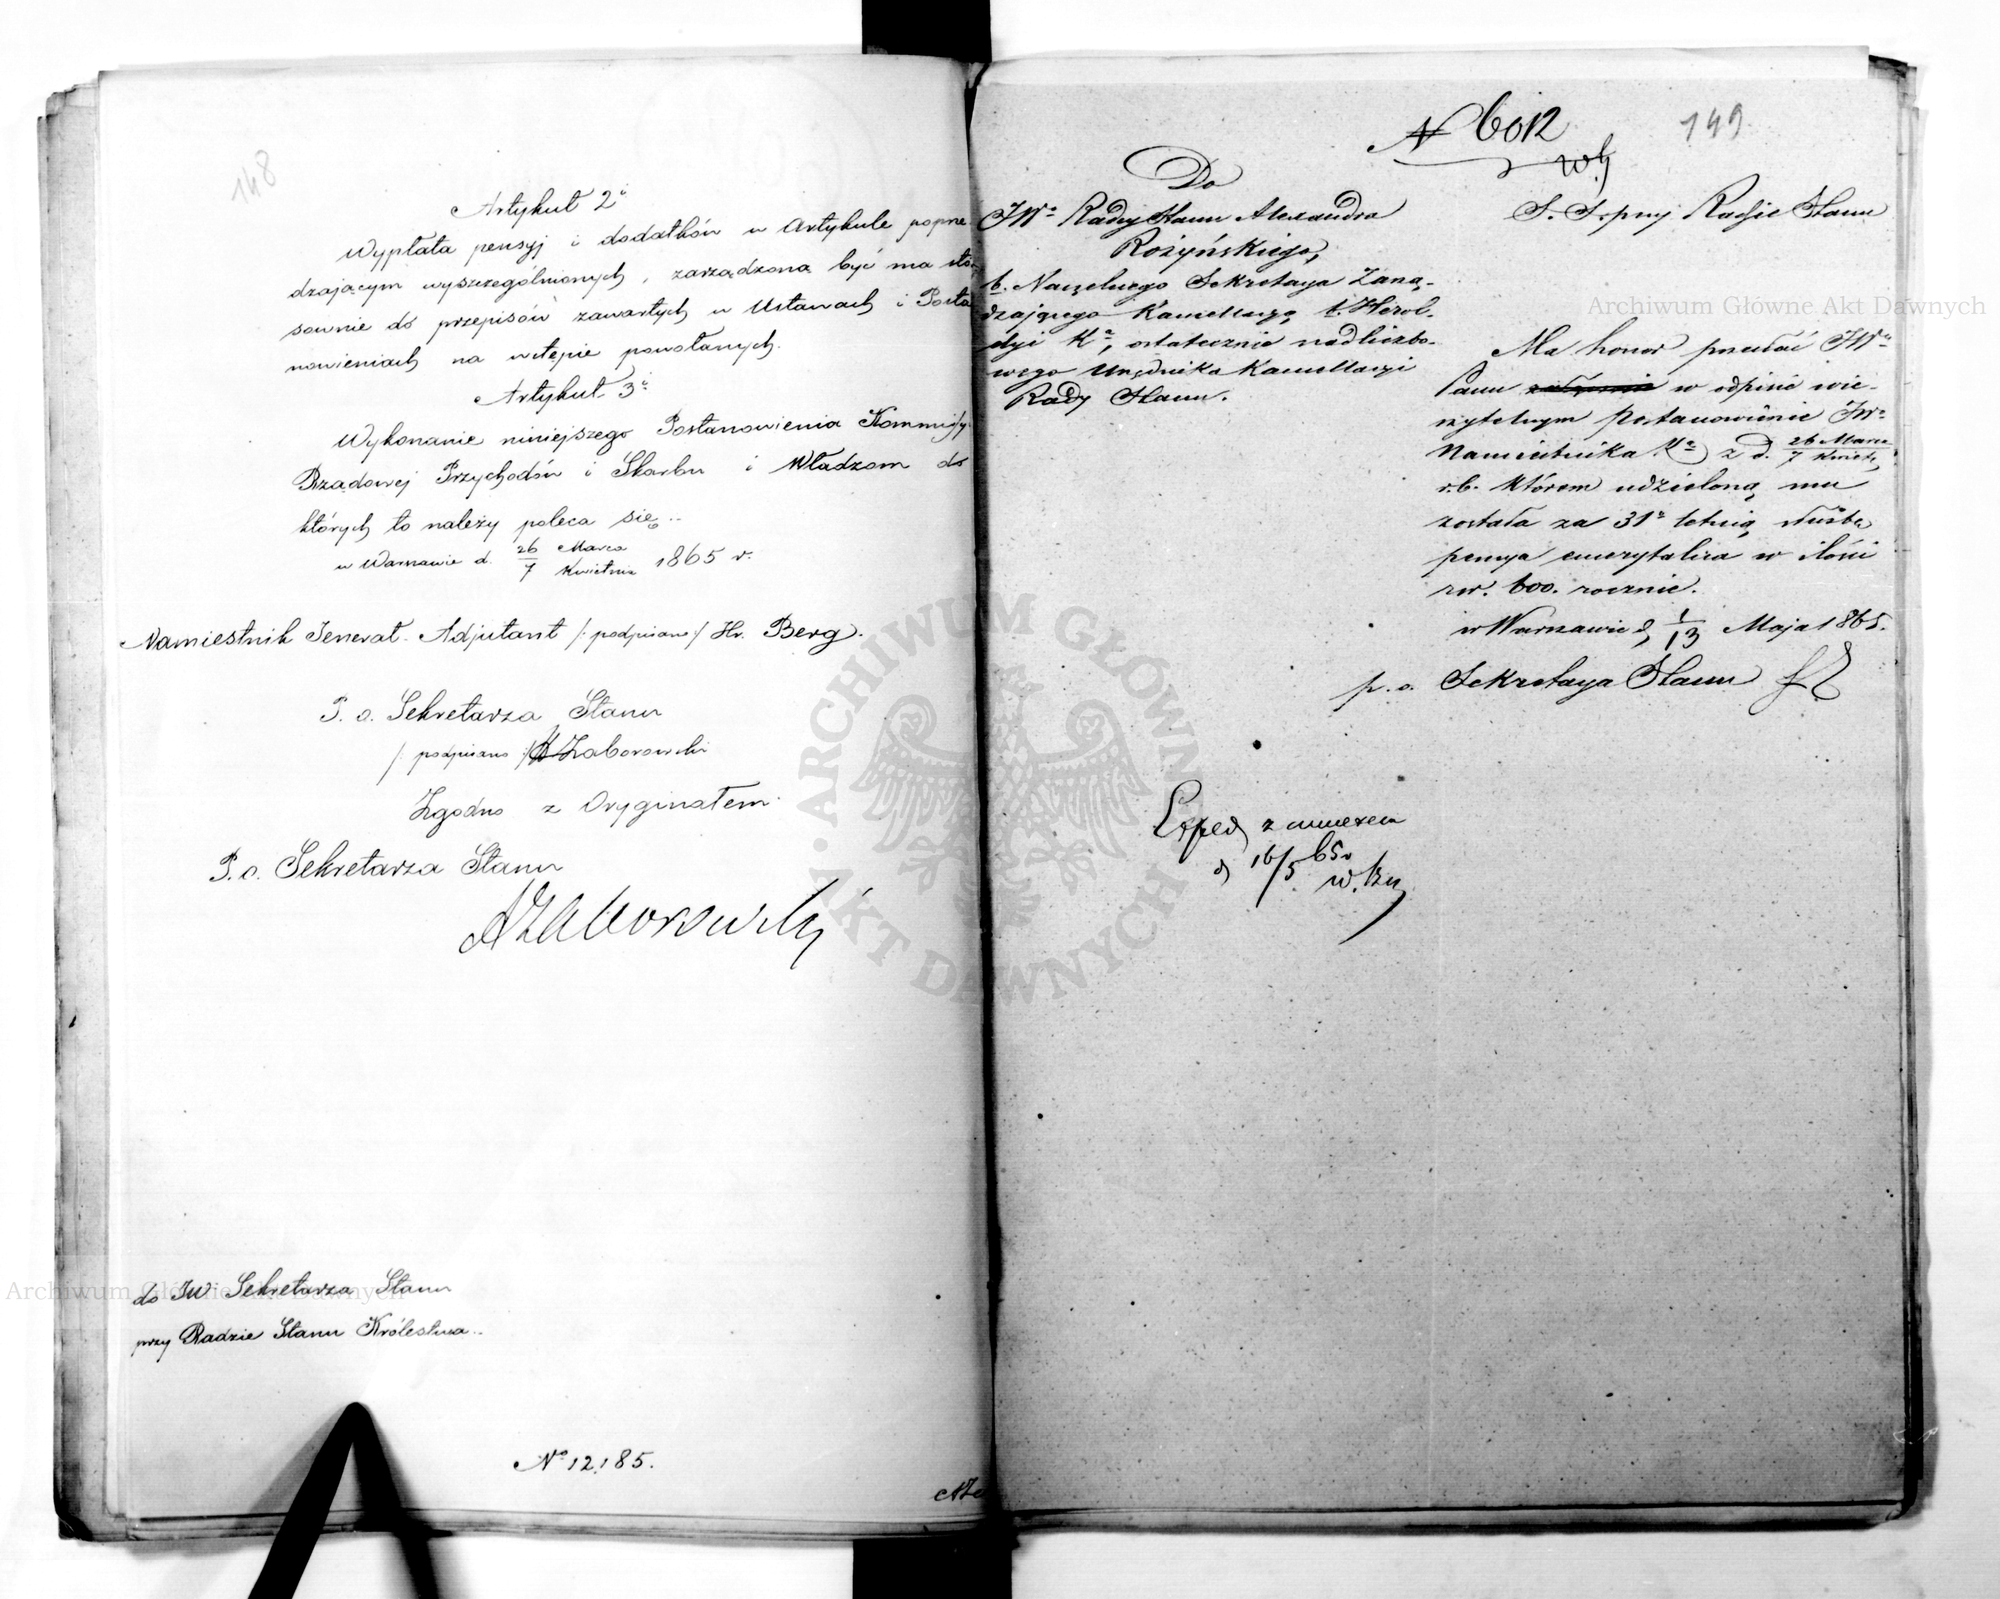 148
Artykuł 2i
Wypłata pensyj i dodatków w Artykule poprze
dzającym wyszczególnionych, zarządzoną być ma sto
sownie do przepisów zawartych w Ustawach i Posta
nowieniach na wstępie powołanych.
Artykuł 3i
Wykonanie niniejszego Postanowienia Kommissyi
Rządowej Przychodów i Skarbu i Władzom do
których to należy poleca się..
w Warszawie d. 26 Marca / 7 Kwietnia 1865 r.
Namiestnik Jenerał-Adjutant /:podpisano:/ Hr. Berg.
P. o. Sekretarza Stanu
/:podpisano:/ Zaborowski
Zgodno z Oryginałem
P. o. Sekretarza Stanu
AZaborowski
do JW Sekretarza Stanu
przy Radzie Stanu Królestwa..
No 12,185.
149
N 6012
Do
JWo Radcy Stanu Alexandra
Rożyńskiego,
b. Naczelnego Sekretarza Zarzą-
dzającego Kancellaryą b. Herol-
dyi Ka, ostatecznie nadliczbo-
wego Urzędnika Kancellaryi
Rady Stanu.
S. S. przy Radzie Stanu
Ma honor przesłać JWu
Panu w odpisie wie-
rzytelnym postanowienie JWo
Namiestnika Ka z d. 26 Marca / 7 Kwietn,
r. b. którem udzieloną mu
została za 31o letnią służbę
pensya emerytalna w ilości
rsr. 600. rocznie.
w Warszawie d, 1/13 Maja 1865.
p. o. Sekretarza Stanu
Exped z numerem
d 16/5 65
Archiwum Główne Akt Dawnych
Archiwum Główne Akt Dawnych
· ARCHIWUM GŁÓWNE · AKT DAWNYCH